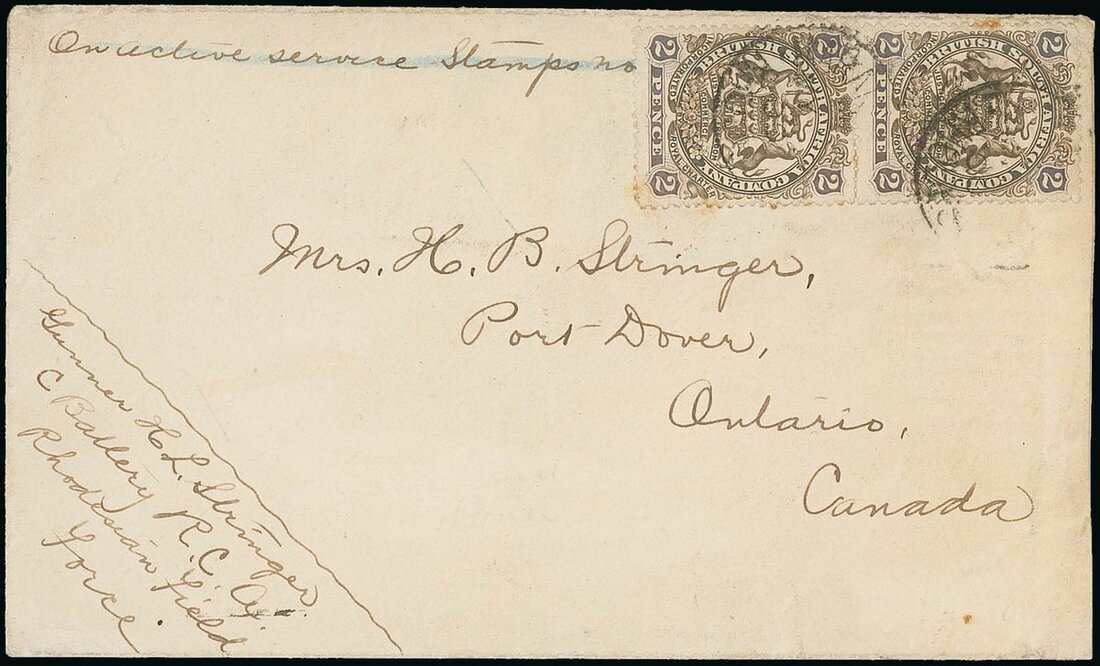 On active service Stamps no
2 PENCE 2
BRITISH SOUTH AFRICA COMPANY
INCORPORATED BY ROYAL CHARTER
2 2
2 PENCE 2
BRITISH SOUTH AFRICA COMPANY
INCORPORATED BY ROYAL CHARTER
2 2
Mrs. H. B. Stringer,
Port Dover,
Ontario,
Canada
Gunner H. L. Stringer
C Battery R. C. A.
Rhodesian Field
Force.